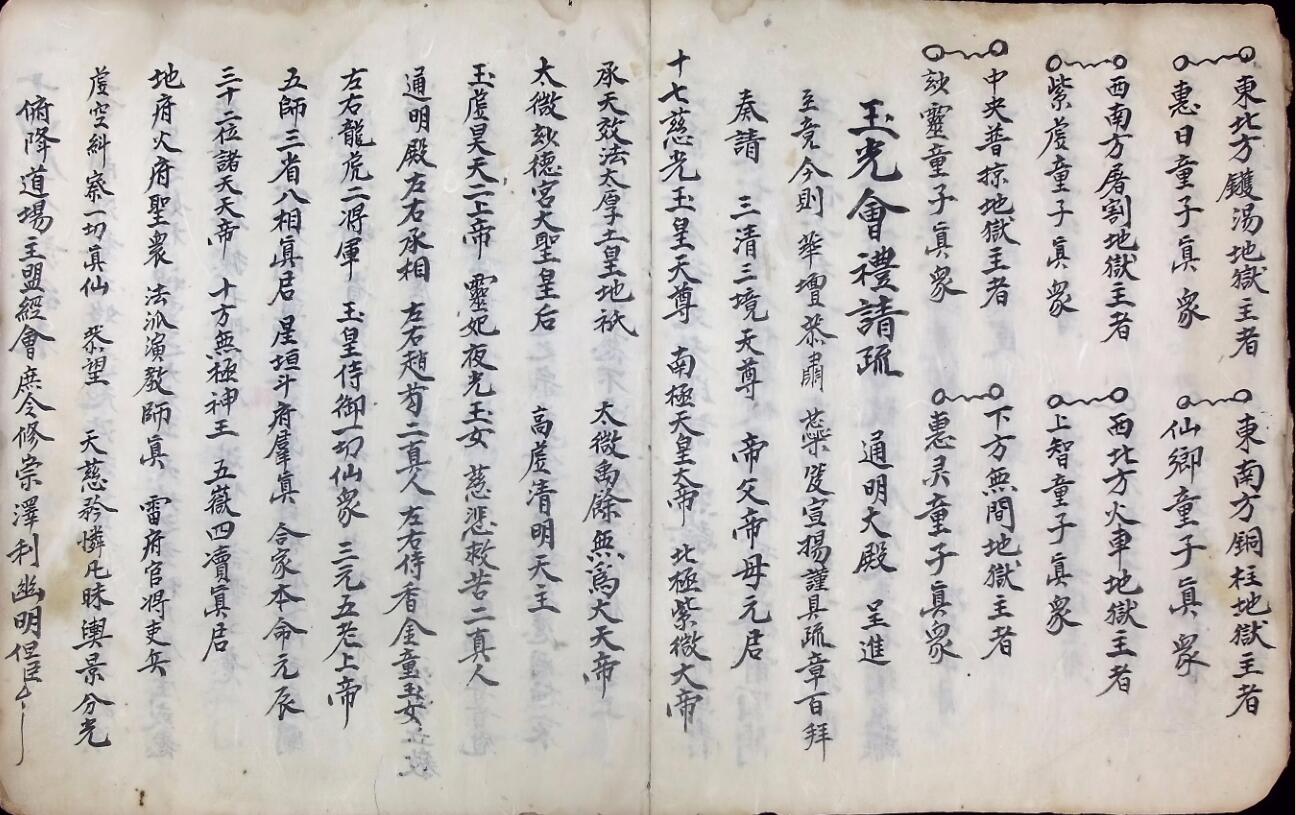 東北方鑊湯地獄主者 東南方銅柱地獄主者
惠日童子眞衆 仙鄉童子眞衆
西南方屠割地獄主者 西北方火車地獄主者
紫虛童子眞衆 上智童子眞衆
中央普掠地獄主者 下方無間地獄主者
妙靈童子眞衆 惠灵童子眞衆
玉光會禮請疏 通明大殿 呈進
至竟今則 華壇恭肅 蘂笈宣揚謹具疏章百拜
奏請 三清三境天尊 帝父帝母元君
十七慈光玉皇天尊 南極天皇大帝 北極紫微大帝
承天效法大厚土皇地祇 太微禹餘無爲大天帝
太微妙德宮大聖皇后 高虛清明天主
玉虛昊天二上帝 靈妃夜光玉女 慈悲救苦二真人
通明殿左右承相 左右趙葛二真人 左右侍香金童玉女
左右龍虎二將軍 玉皇侍御一切仙衆 三元五老上帝
五師三省八相眞君 星垣斗府羣眞 合家本命元辰
三十二位諸天天帝 十方無極神王 五嶽四瀆冥君
地府火府聖衆 法派演教師眞 雷府官將吏兵
虛空糾察一切眞仙 恭望 天慈矜憐凡昧輿景分光
俯降道場主盟經會庶令修崇澤利幽明但臣